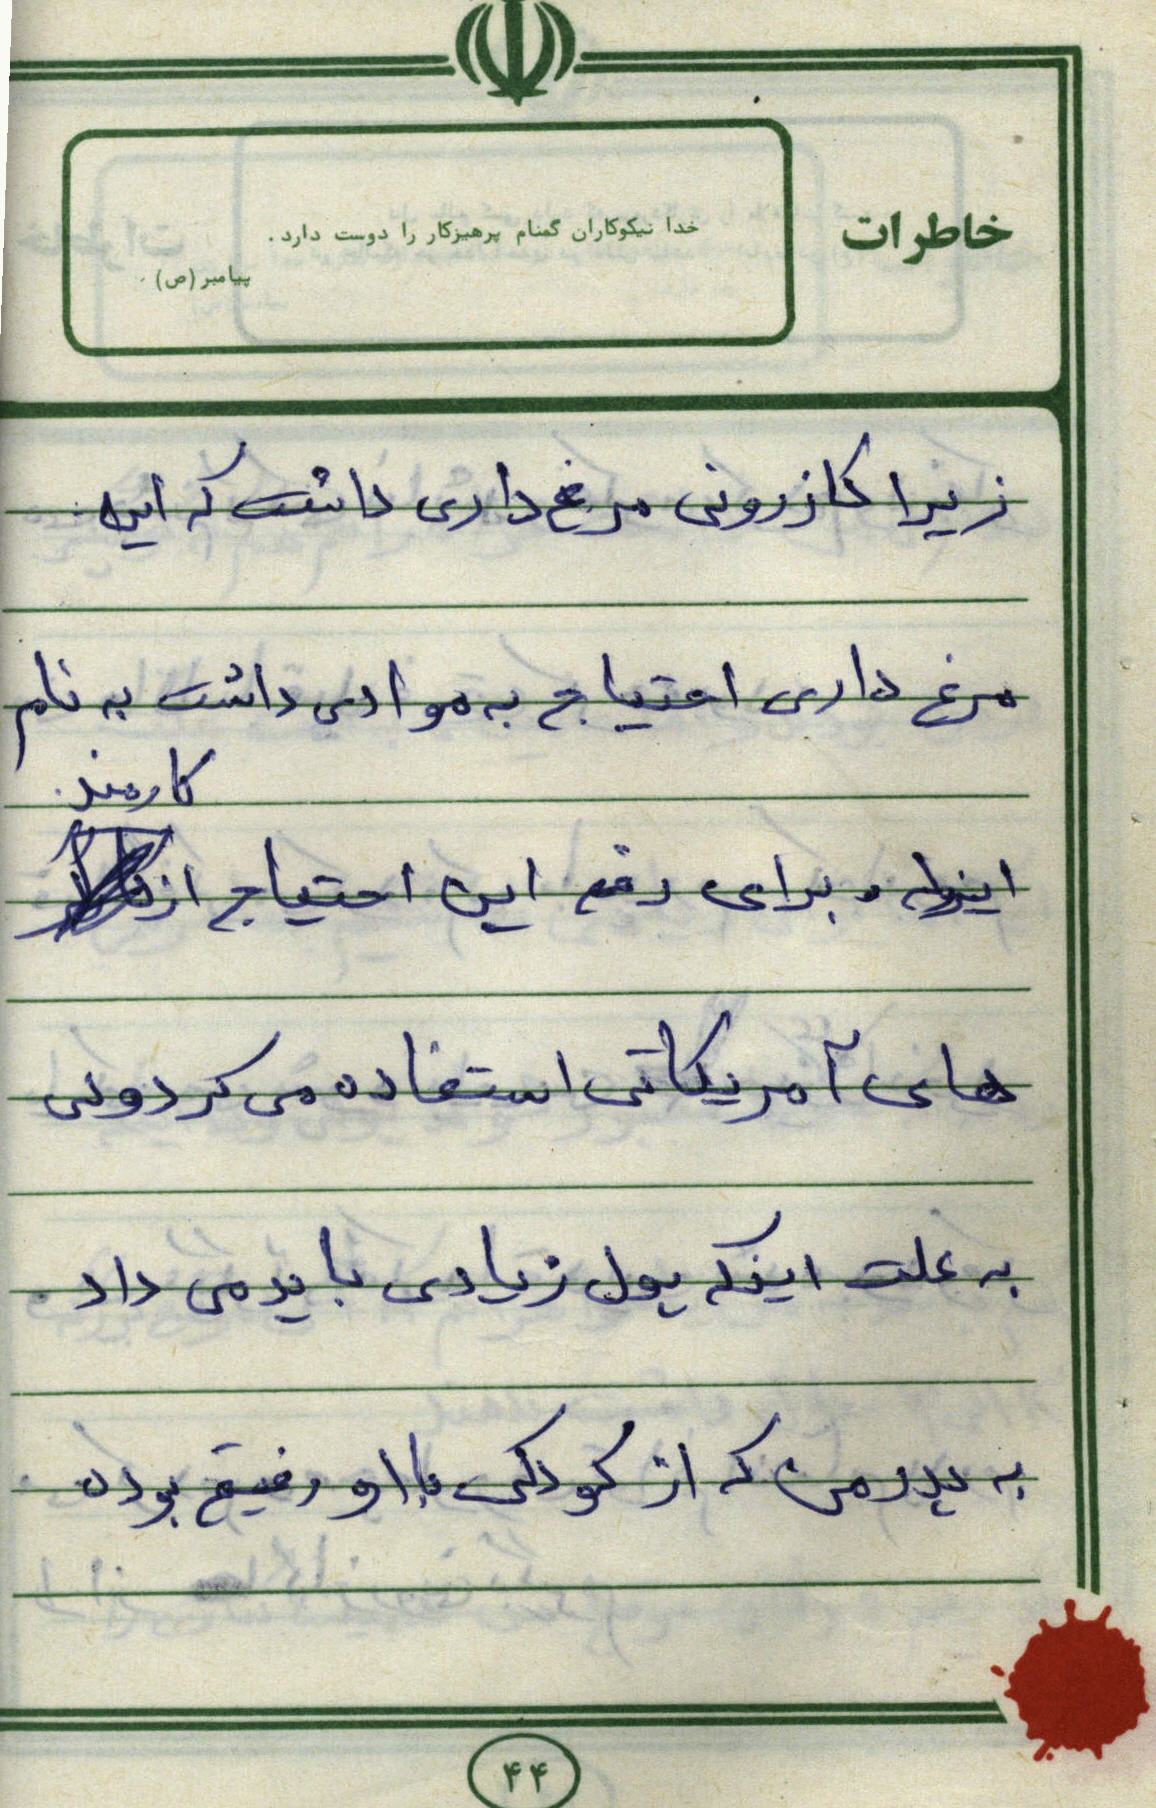 خاطرات
خدا نیکوکاران گمنام پرهیزکار را دوست دارد.
پیامبر (ص)
زیرا کازرونی مرغ داری داشت که این
مرغ داری احتیاج به موادی داشت به نام
کارمند
و برای رفع این احتیاج از
های آمریکائی استفاده می کرد ولی
به علت اینکه پول زیادی باید می داد
به پدر من که از کودکی با او رفیق بوده
۴۴